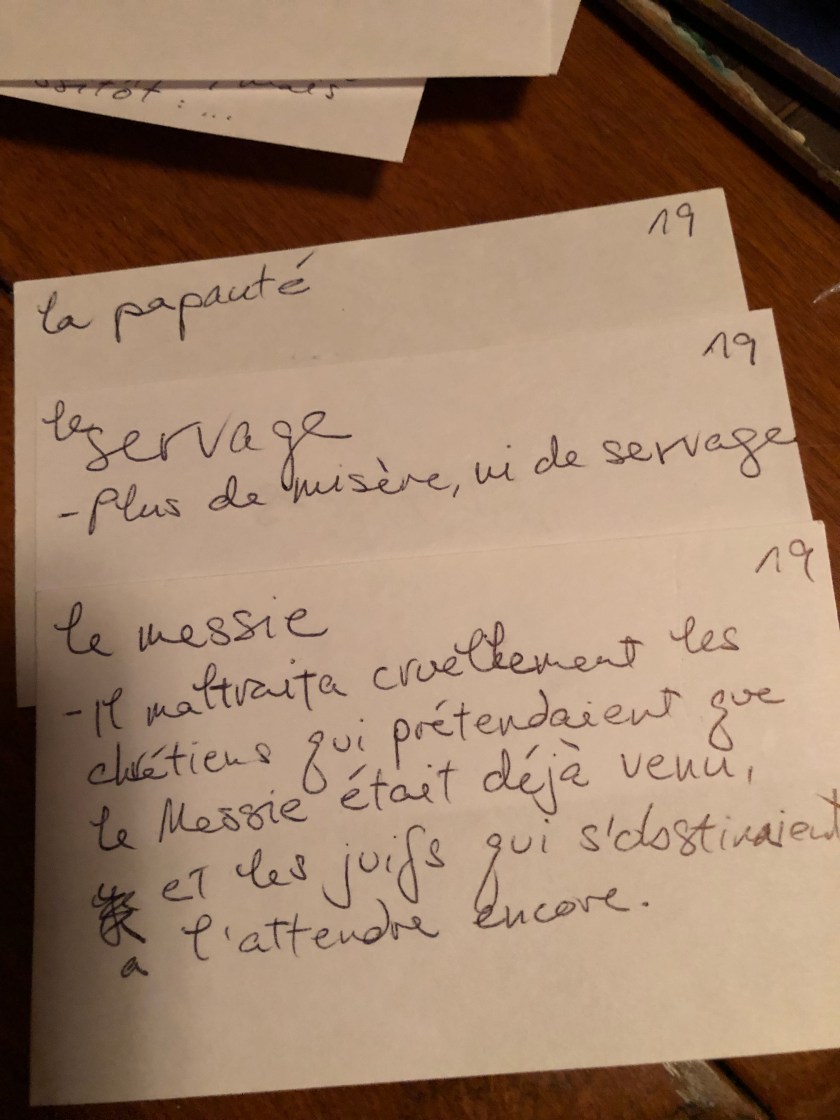 mais
: ...
19
la papauté
19
le servage
- Plus de misère, ni de servage
19
le messie
- Il maltraita cruellement les
chrétiens qui prétendaient que
le Messie était déjà venu,
et les juifs qui s'obstinaient
a l'attendre encore.